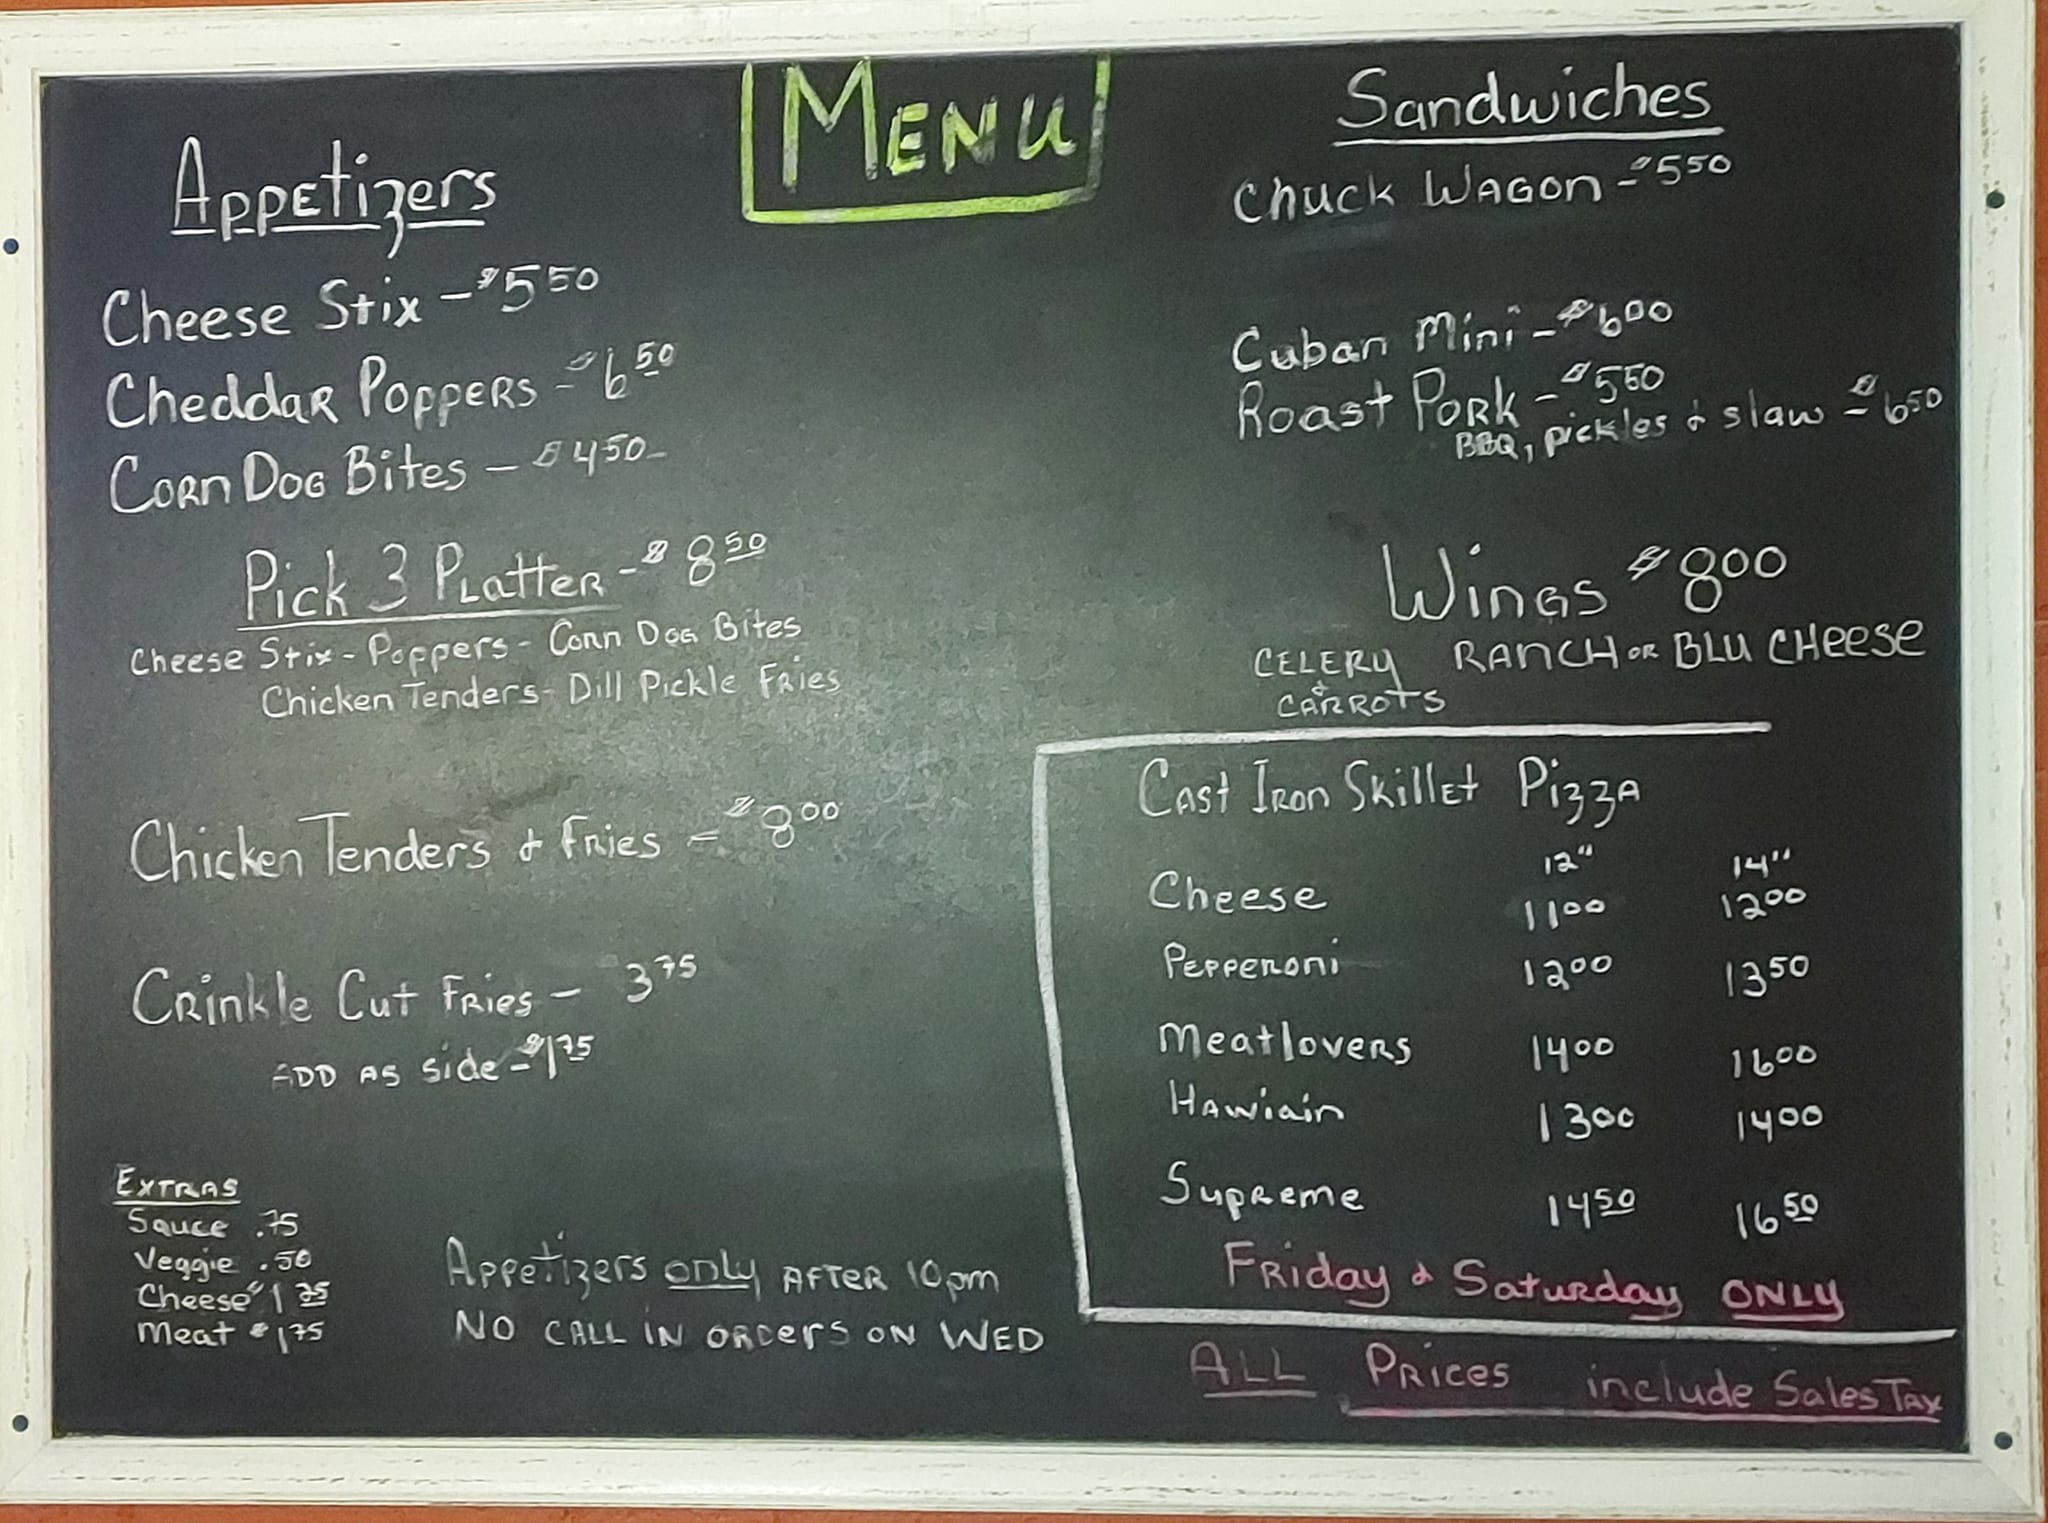 MENU
Appetizers
Cheese Stix - $5 50
Cheddar Poppers - $6 50
Corn Dog Bites - $4 50
Pick 3 Platter - $8 50
Cheese Stix - Poppers - Corn Dog Bites
Chicken Tenders - Dill Pickle Fries
Chicken Tenders & Fries - $8 00
Crinkle Cut Fries - 3 75
ADD AS side - $1 75
EXTRAS
Sauce .75
Veggie .50
Cheese $1 25
Meat $1 75
Appetizers only AFTER 10pm
NO CALL IN ORDERS ON WED
Sandwiches
Chuck WAGON - $5 50
Cuban Mini - $6 00
Roast Pork - $5 50
BBQ, pickles & slaw - $6 50
Wings $8 00
CELERY & CARROTS RANCH OR BLU CHEESE
Cast Iron Skillet Pizza
12" 14"
Cheese 11 00 12 00
Pepperoni 12 00 13 50
Meatlovers 14 00 16 00
Hawiain 13 00 14 00
Supreme 14 50 16 50
Friday & Saturday ONLY
ALL Prices include Sales Tax